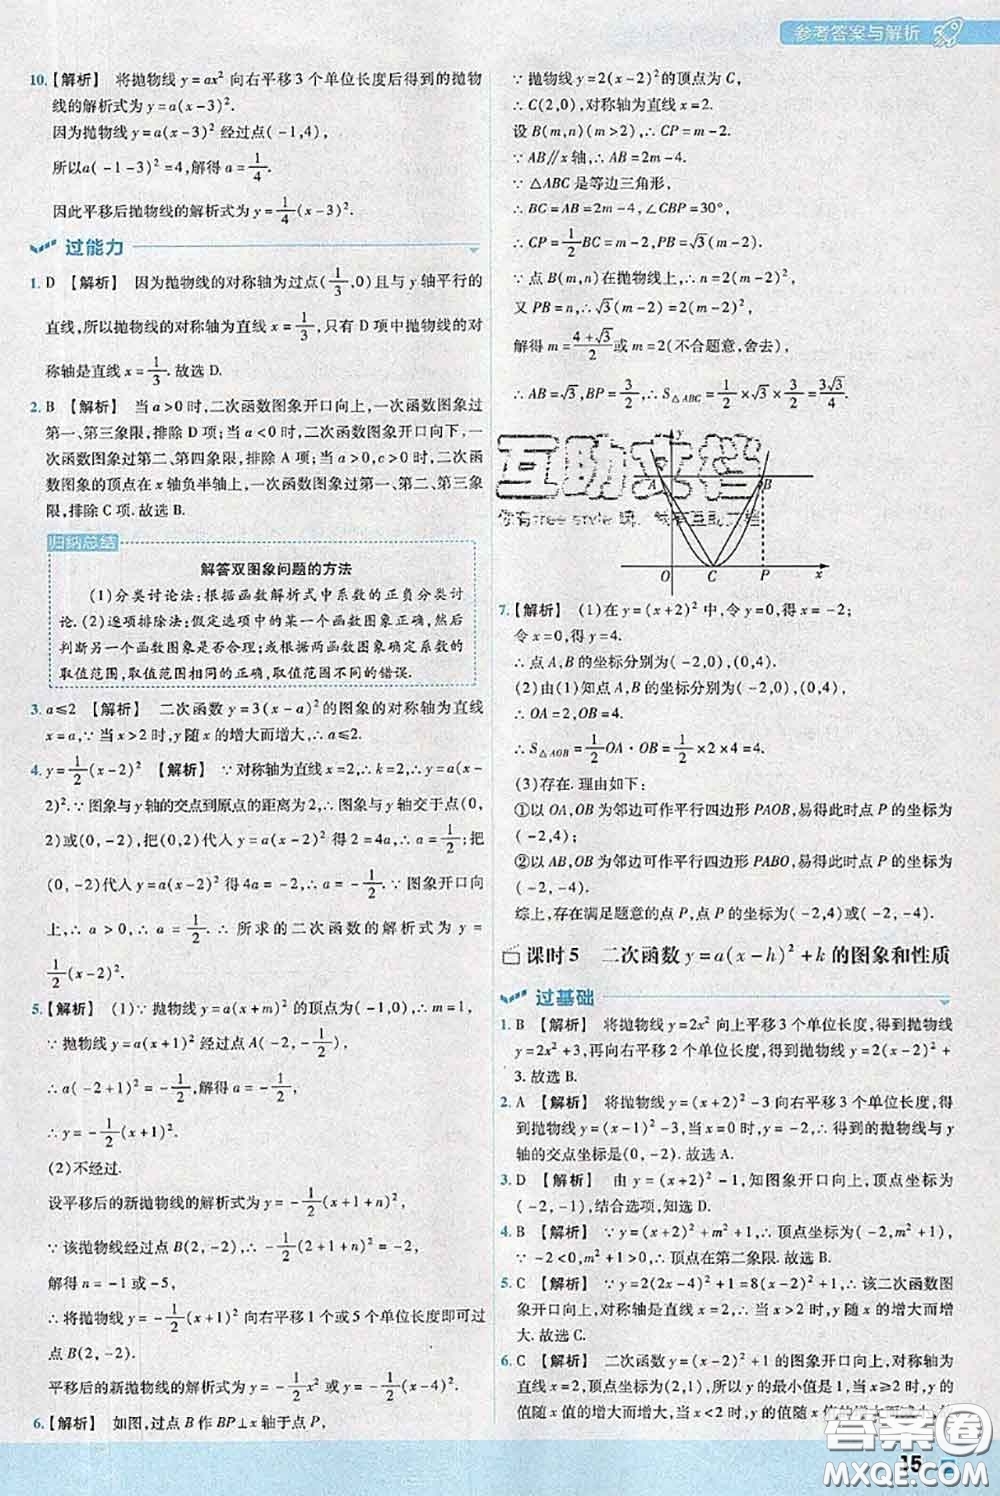 参考答案与解析
10.【解析】 将抛物线 y=ax² 向右平移 3 个单位长度后得到的抛物
线的解析式为 y=a(x-3)².
因为抛物线 y=a(x-3)² 经过点(-1,4),
所以a(-1-3)²=4,解得 a=1/4.
因此平移后抛物线的解析式为 y=1/4(x-3)².
过能力
1. D 【解析】 因为抛物线的对称轴为过点(1/3,0)且与 y 轴平行的
直线,所以抛物线的对称轴为直线 x=1/3,只有 D 项中抛物线的对
称轴是直线 x=1/3.故选 D.
2. B 【解析】 当 a>0时,二次函数图象开口向上,一次函数图象过
第一、第三象限,排除 D 项;当 a<0 时,二次函数图象开口向下,一
次函数图象过第二、第四象限,排除 A 项;当 a>0,c>0时,二次函
数图象的顶点在 x 轴负半轴上,一次函数图象过第一、第二、第三象
限,排除 C 项.故选 B.
归纳总结
解答双图象问题的方法
(1)分类讨论法:根据函数解析式中系数的正负分类讨
论.(2)逐项排除法:假定选项中的某一个函数图象正确,然后
判断另一个函数图象是否合理;或根据两函数图象确定系数的
取值范围,取值范围相同的正确,取值范围不同的错误.
3. a≤2 【解析】 二次函数 y=3(x-a)²的图象的对称轴为直线
x=a,∵当 x>2时,y 随 x 的增大而增大,∴a≤2.
4. y=1/2(x-2)² 【解析】 ∵对称轴为直线 x=2,∴k=2,∴y=a(x-
2)².∵图象与 y 轴的交点到原点的距离为 2,∴图象与 y 轴交于点(0,
2)或(0,-2),把(0,2)代入 y=a(x-2)² 得 2=4a,∴a=1/2;把
(0,-2)代入 y=a(x-2)² 得4a=-2,∴a=-1/2.∵图象开口向
上,∴a>0,∴a=1/2,∴所求的二次函数的解析式为 y=
1/2(x-2)².
5.【解析】 (1)∵抛物线 y=a(x+m)² 的顶点为(-1,0),∴m=1,
∵抛物线 y=a(x+1)² 经过点 A(-2,-1/2),
∴a(-2+1)²=-1/2,解得 a=-1/2,
∴y=-1/2(x+1)².
(2)不经过.
设平移后的新抛物线的解析式为 y=-1/2(x+1+n)².
∵该抛物线经过点 B(2,-2),∴-1/2(2+1+n)²=-2,
解得 n=-1或-5,
∴将抛物线 y=-1/2(x+1)² 向右平移1个或5个单位长度即可过
点 B(2,-2).
平移后的新抛物线的解析式为 y=-1/2x² 或 y=-1/2(x-4)².
6.【解析】 如图,过点 B 作 BP⊥x 轴于点 P,
∵抛物线 y=2(x-2)² 的顶点为 C,
∴C(2,0),对称轴为直线 x=2.
设 B(m,n)(m>2),∴CP=m-2.
∵AB∥x 轴,∴AB=2m-4.
∵△ABC 是等边三角形,
∴BC=AB=2m-4,∠CBP=30°,
∴CP=1/2BC=m-2,∴PB=√3(m-2).
∵点 B(m,n)在抛物线上,∴n=2(m-2)².
又 PB=n,∴√3(m-2)=2(m-2)²,
解得 m=(4+√3)/2或 m=2(不合题意,舍去),
∴AB=√3,BP=3/2,∴S△ABC=1/2×√3×3/2=3√3/4.
互助文档
y
B
O
C
P
x
7.【解析】 (1)在 y=(x+2)² 中,令 y=0,得 x=-2;
令 x=0,得 y=4.
∴点 A,B 的坐标分别为(-2,0),(0,4).
(2)由(1)知点 A,B 的坐标分别为(-2,0),(0,4).
∴OA=2,OB=4.
∴S△AOB=1/2OA·OB=1/2×2×4=4.
(3)存在.理由如下:
①以 OA,OB 为邻边可作平行四边形 PAOB,易得此时点 P 的坐标为
(-2,4);
②以 AB,OB 为邻边可作平行四边形 PABO,易得此时点 P 的坐标为
(-2,-4).
综上,存在满足题意的点 P,点 P 的坐标为(-2,4)或(-2,-4).
课时 5 二次函数 y=a(x-h)²+k 的图象和性质
过基础
1. B 【解析】 将抛物线 y=2x² 向上平移 3 个单位长度,得到抛物线
y=2x²+3,再向右平移 2 个单位长度,得到抛物线 y=2(x-2)²+
3.故选 B.
2. A 【解析】 将抛物线 y=(x+2)²-3 向右平移 3 个单位长度,得
到抛物线 y=(x-1)²-3,当 x=0时,y=-2,∴得到的抛物线与 y
轴的交点坐标是(0,-2).故选 A.
3. D 【解析】 由 y=(x+2)²-1,知抛物线开口向上,顶点坐标为
(-2,-1),结合选项,知选 D.
4. B 【解析】 ∵y=(x+2)²+m²+1,∴顶点坐标为(-2,m²+1).
∵-2<0,m²+1>0,∴顶点在第二象限.故选 B.
5. C 【解析】 ∵y=2(2x-4)²+1=8(x-2)²+1,∴该二次函数图
象开口向上,对称轴为直线 x=2,∴当 x>2 时,y 随 x 的增大而增
大.故选 C.
6. C 【解析】 二次函数 y=(x-2)²+1 的图象开口向上,对称轴为
直线 x=2,顶点坐标为(2,1),所以 y 的最小值是 1,当 x≥2 时,y 的
值随 x 值的增大而增大,当 x<2 时,y 的值随 x 值的增大而
15
答案圈
MXQE.COM